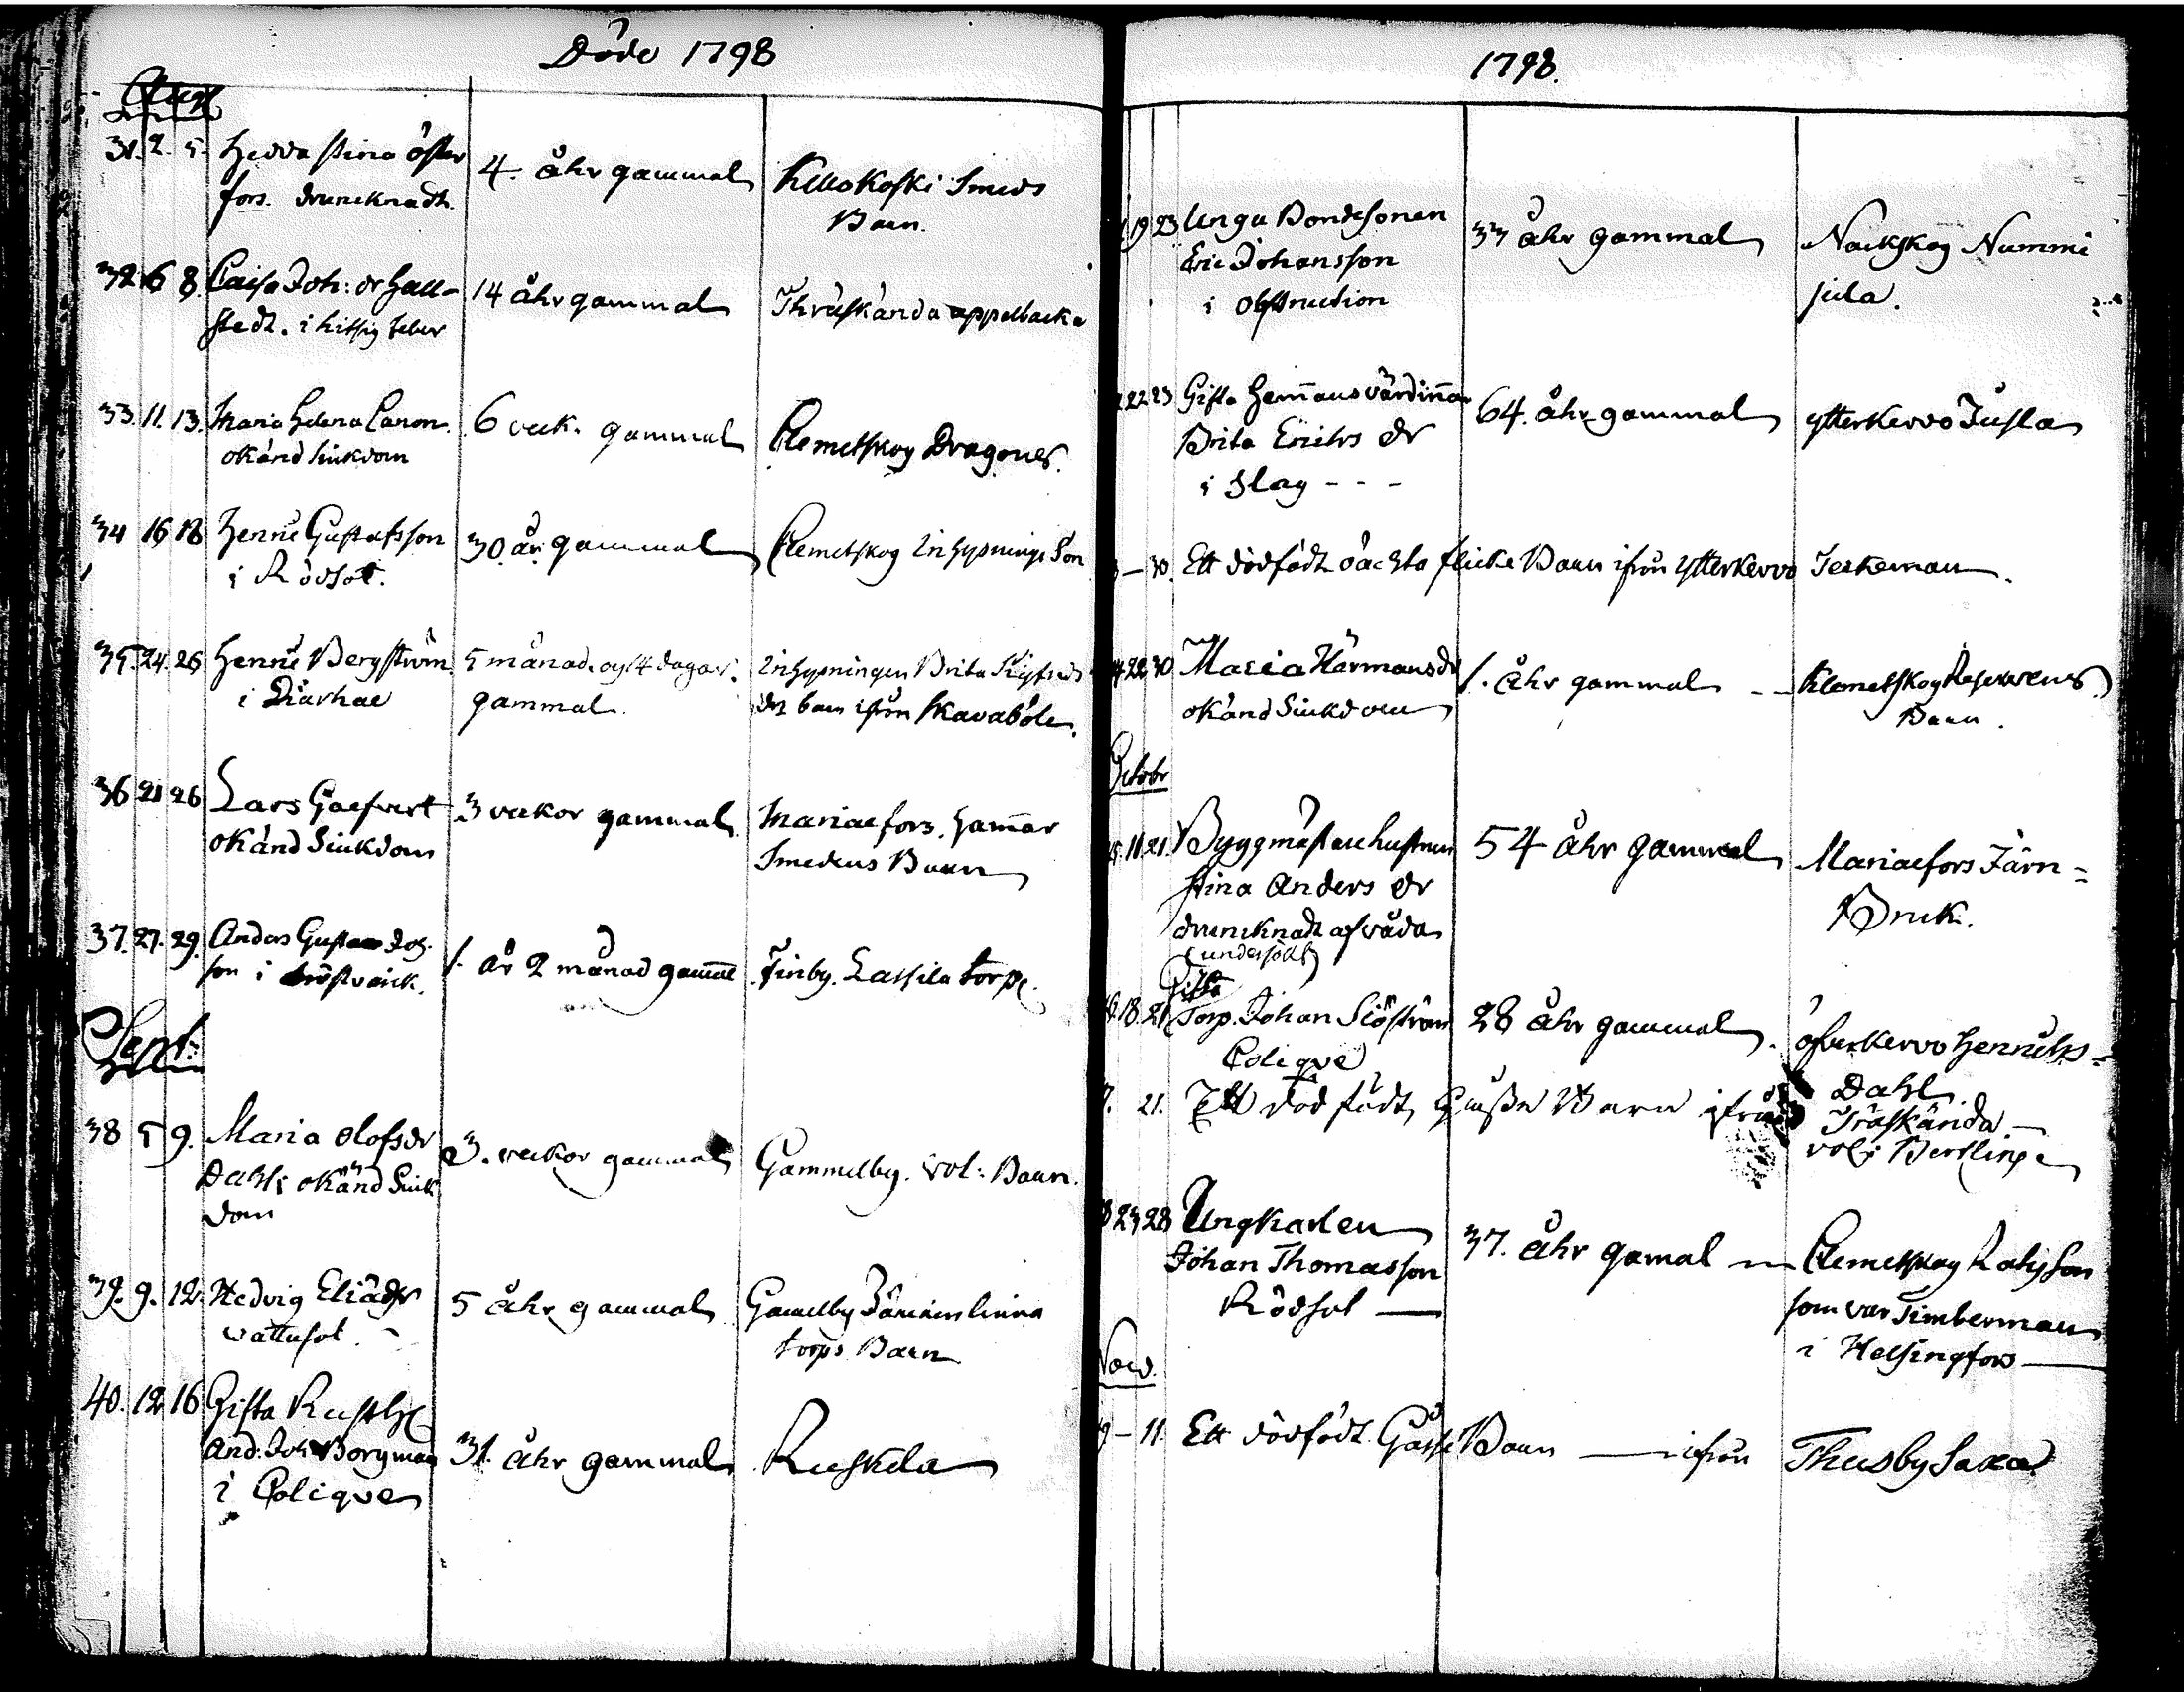 Döde 1798
Aug
31. 2. 5. Hedda Stina Öster
fors. druncknadt.
4. åhr gammal
Kellokoski Smeds
Barn.
32 6 8. Caisa Joh: dr Hall-
stedt. i hitsig feber
14 åhr gammal
Thräskända appelbacka
33. 11. 13. Maria Helena Canon.
okänd Siukdom
6 veck. gammal
Clemetskog Dragones.
34 16 18 Henric Gustafsson
i Rödsot.
30. år gammal
Clemetskog Inhysnings Son
35. 24. 26 Henric Bergström
i Diarhae
5 månad. og 14 dagar.
gammal.
Inhysningen Brita Sigfreds
dr barn ifrån Skavaböle.
36 21 26 Lars Graefvert
okänd Siukdom
3 veckor gammal.
Mariaefors. Ham̄ar
Smedens Barn
37. 27. 29. Anders Gustaf Joh.
son i bröstvärck.
1. år 2 månad gam̄al
Finby. Lassila torp.
Sept:
38 5 9. Maria Olofsdr
Dahl; okänd Siuk
dom
3. veckor gammal
Gammelby. vol: Barn.
39. 9. 12. Hedvig Eliædr
vattusot.
5 åhr gammal
Gamelby Jänickenlinna
torps Barn
40. 12 16 Gifta Rusth.
And: Joh Borgman
i Colique
31. åhr gammal.
Ruskela
1798.
19 23 Unga Bondesonen
Eric Johansson
i obstruction
33 åhr gammal
Nackskog Nummi
jula.
22 23 Gifta Hem̄ans värdin̄an
Brita Erichs dr
i Slag - - -
64. åhr gammal
ytterkervo Jusla
- 30. Ett dödfödt oächta flicke Barn ifrån ytterkervo Jeskeman.
22 30 Maria Härmansdr
okänd Siukdom
1. åhr gammal - -
Klemetskog Reservens
Barn.
Octobr
11 21. Byggmästarehustrun
Stina Anders dr
druncknadt af våda
(undersökt)
54 åhr gammal
Mariaefors Järn=
Bruk.
Gifta
18. 21 Torp. Johan Siöström
Colique
28 åhr gammal.
öfverkervo Henrichs=
Dahl.
21. Ett död födt, Gosse Barn ifrån
Träskända
vol: Bertlinge
23 28 Ungkarlen
Johan Thomasson
Rödsot —
37. åhr gamal —
Clemetskog Rahjson
som var Timberman
i Helsingfors —
Nov.
- 11. Ett dödfödt Gosse Barn — ifrån Thusby Saxa